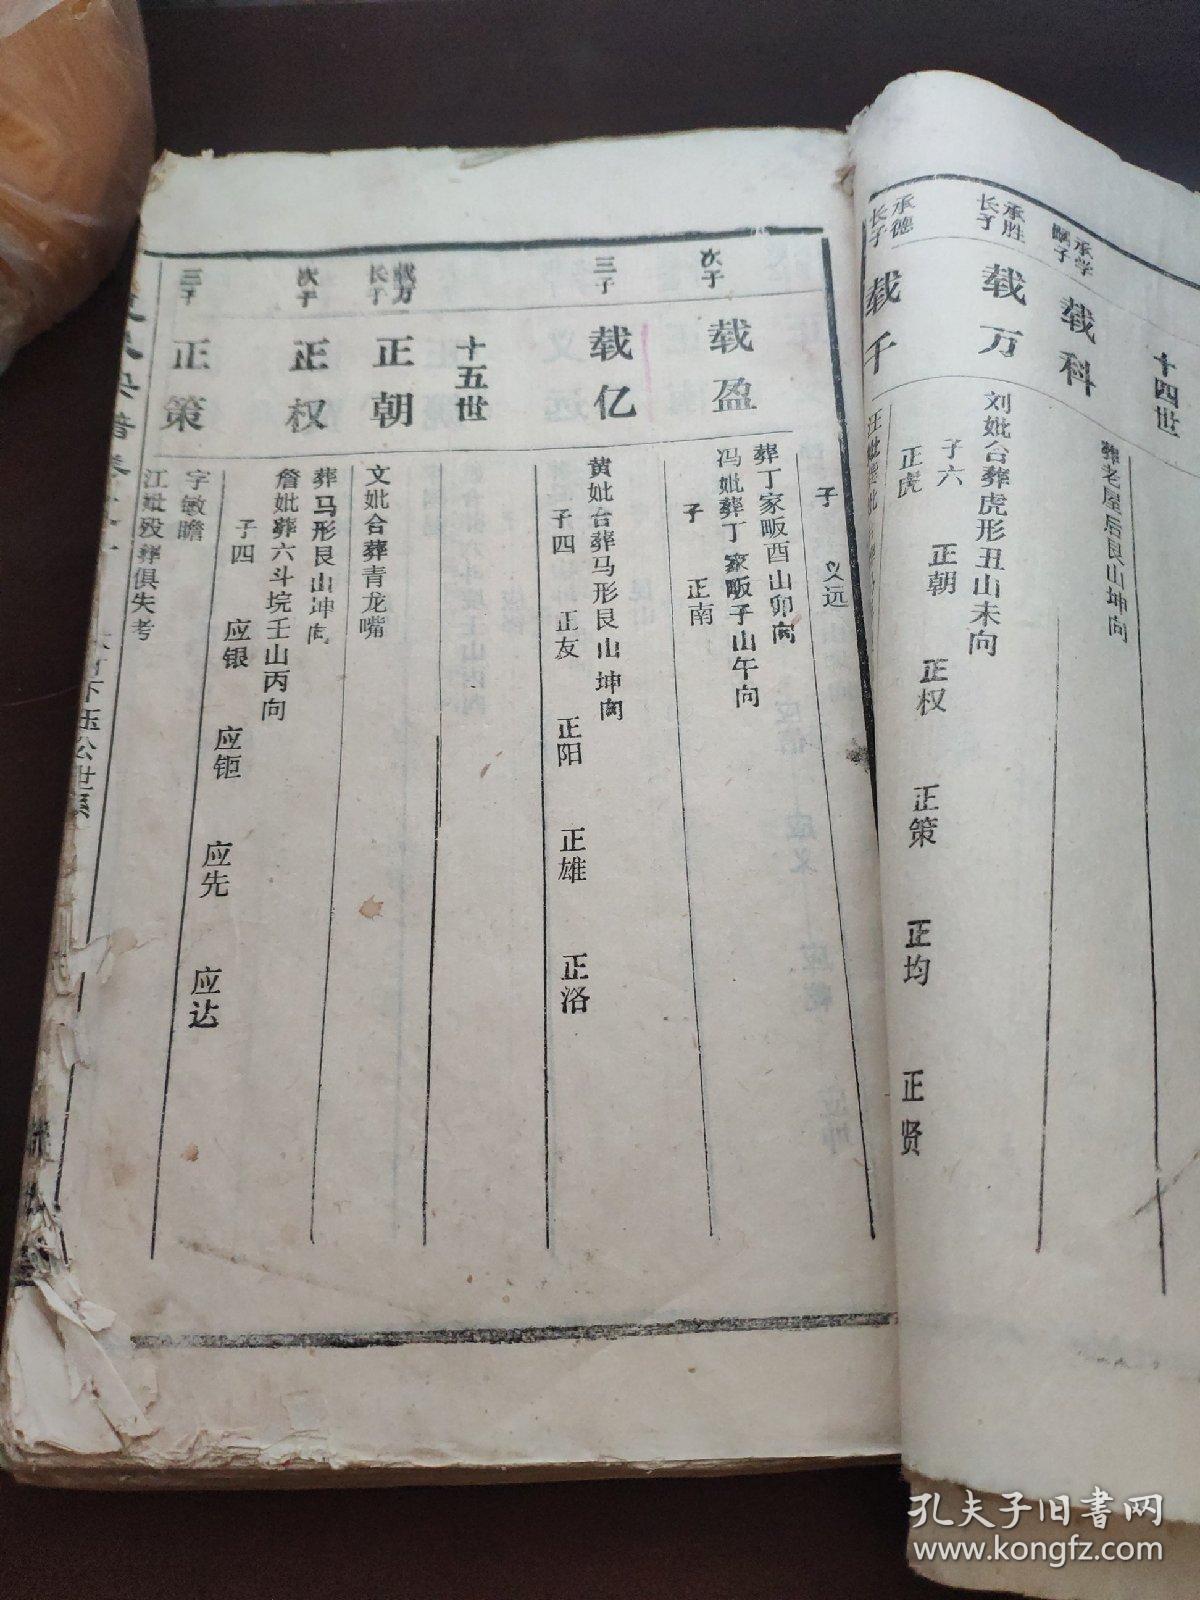 十四世
承学
嗣子
载科
葬老屋后艮山坤向
承胜
长子
载万
刘妣合葬虎形丑山未向
子六 正朝 正权 正策 正均 正贤
正虎
承德
长子
载千
子 义远
次子
载盈
葬丁家畈酉山卯向
冯妣葬丁家畈子山午向
子 正南
三子
载亿
黄妣合葬马形艮山坤向
子四 正友 正阳 正雄 正洛
十五世
载万
长子
正朝
文妣合葬青龙嘴
次子
正权
葬马形艮山坤向
詹妣葬六斗垸壬山丙向
子四 应银 应钜 应先 应达
三子
正策
字敏瞻
江妣殁葬俱失考
下珏公世系
孔夫子旧书网
www.kongfz.com